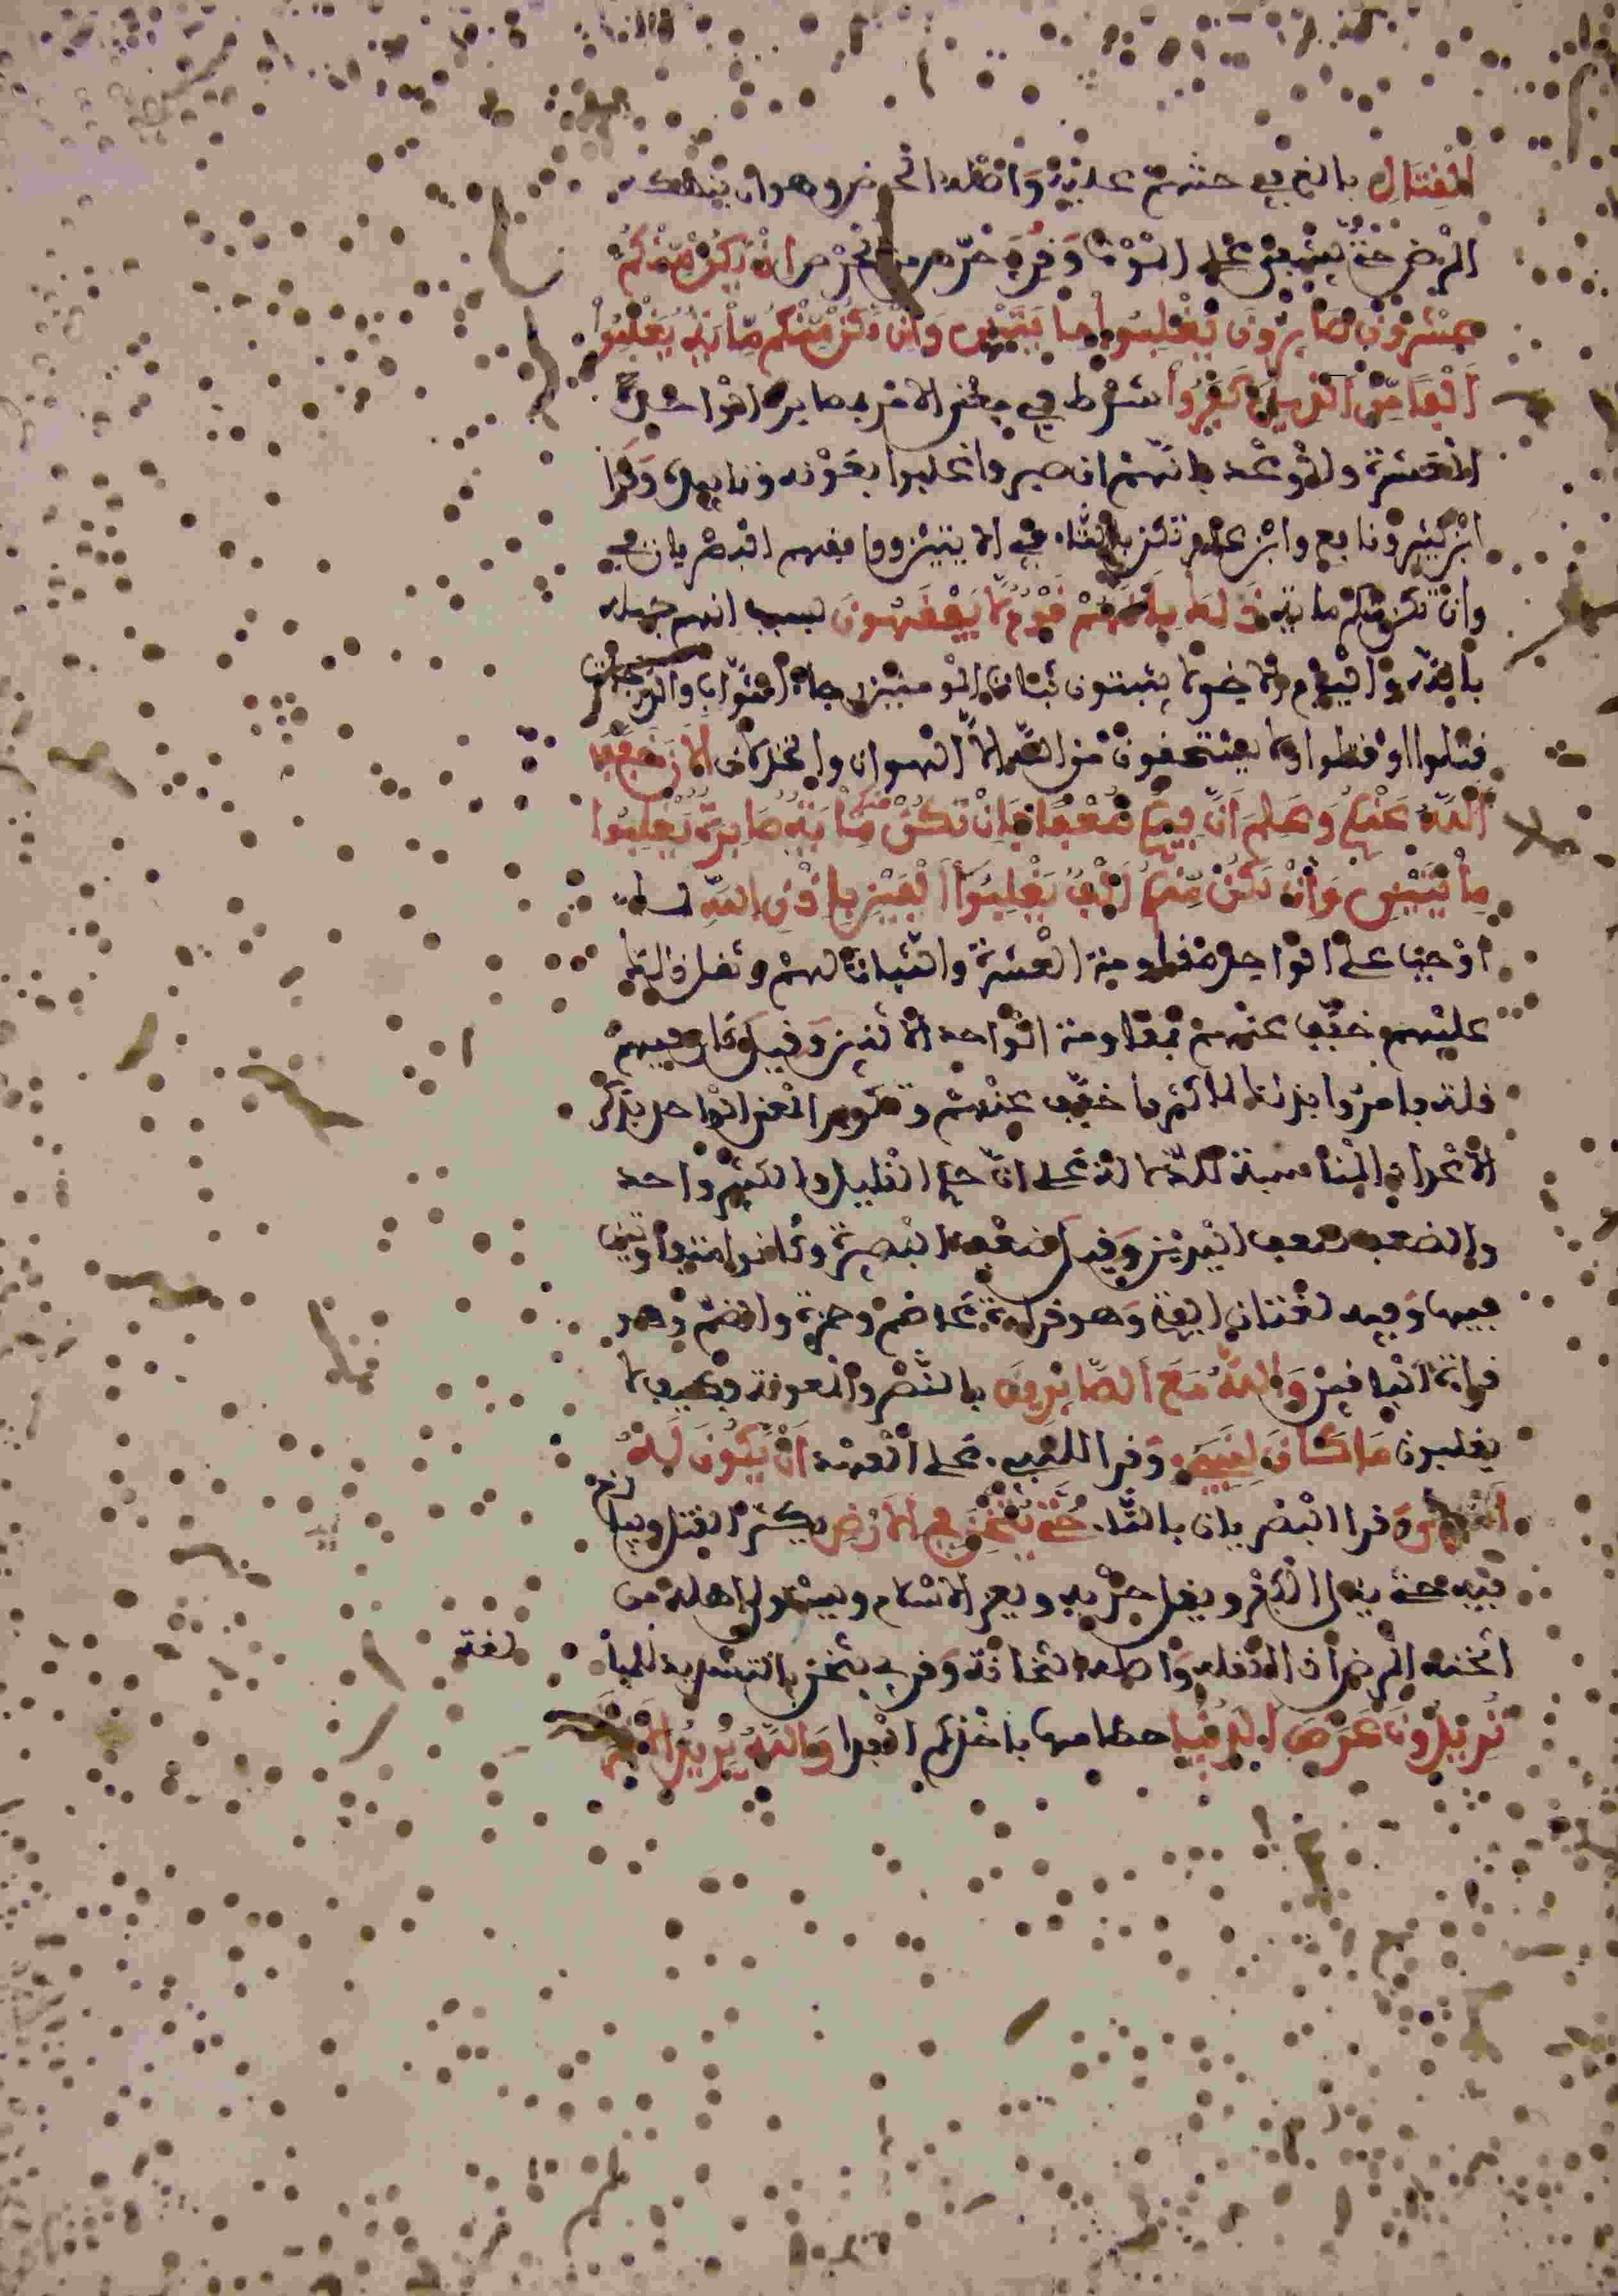 الْقِتَالِ بالغ في حثهم عليه وَاصله الحرض وهو ان ينهكه
المرض حتى يشفى على الموت وَقرئ حرّص من الحرص اِنْ يَّكُن مِّنْكُمْ
عِشْرُونَ صَابِرُونَ يَغْلِبُوا مِائَتَيْنِ وَاِنْ تَكُن مِّنْكُم مِّائَةٌ يَغْلِبُوا
أَلْفًا مِّنَ الَّذِينَ كَفَرُوا شرط في معنى الامر بمصابرة الواحد
العشرة والوعد بانهم ان صبروا غلبوا بعون الله وتاييده وَقرا
ابن كثير ونافع وابن عامر تكن بالتاء في الايتين ووافقهم البصريان في
وان تكن منكم مائة ذَلِكَ بِأَنَّهُمْ قَوْمٌ لَّا يَفْقَهُونَ بسبب انهم جهلة
بالله واليوم الاخر لا يثبتون ثبات المومنين رجاء الثواب والدرجات
قتلوا او قتلوا ولا يستحقون من الله الا الهوان والخذلان الَانَ خَفَّفَ
اللَّهُ عَنْكُمْ وَعَلِمَ أَنَّ فِيكُمْ ضُعْفًا فَإِنْ تَكُن مِنْكُم مِّائَةٌ صَابِرَةٌ يَغْلِبُوا
مِائَتَيْنِ وَإِنْ يَكُن مِّنْكُمْ أَلْفٌ يَغْلِبُوا أَلْفَيْنِ بِإِذْنِ اللَّهِ لما
اوجب على الواحد مقاومة العشرة والثبات لهم وثقل ذلك
عليهم خفف عنهم بمقاومة الواحد الاثنين وَقيل كان فيهم
قلة فامروا بذلك ثم لما كثروا خفف عنهم وتكرير المعنى الواحد بذكر
الاعداد المناسبة للدلالة على ان حكم القليل والكثير واحد
والضعف ضعف البدن وَقيل ضعف البصيرة وكانوا متفاوتين
فيها وَفيه لغتان الفتح وَهو قراءة عاصم وحمزة والضم وهو
قراءة الباقين وَاللَّهُ مَعَ الصَّابِرِينَ بالنصر والمعونة فكيف لا
يغلبون مَا كَانَ لِنَبِيٍّ وَقرئ للنبي على العهد أَنْ يَّكُونَ لَهُ
أَسْرَى وَقرا البصريان بالتاء حَتَّى يُثْخِنَ فِي الْأَرْضِ يكثر القتل ويبالغ
فيه حتى يذل الكفر ويقل حزبه ويعز الاسلام ويستولي اهله من
اثخنه المرض اذا اثقله وَاصله الثخانة وَقرئ يثخن بالتشديد للمبا
لغة
تُرِيدُونَ عَرَضَ الدُّنْيَا حطامها باخذكم الفداء وَاللَّهُ يُرِيدُ الْآخِرَةَ